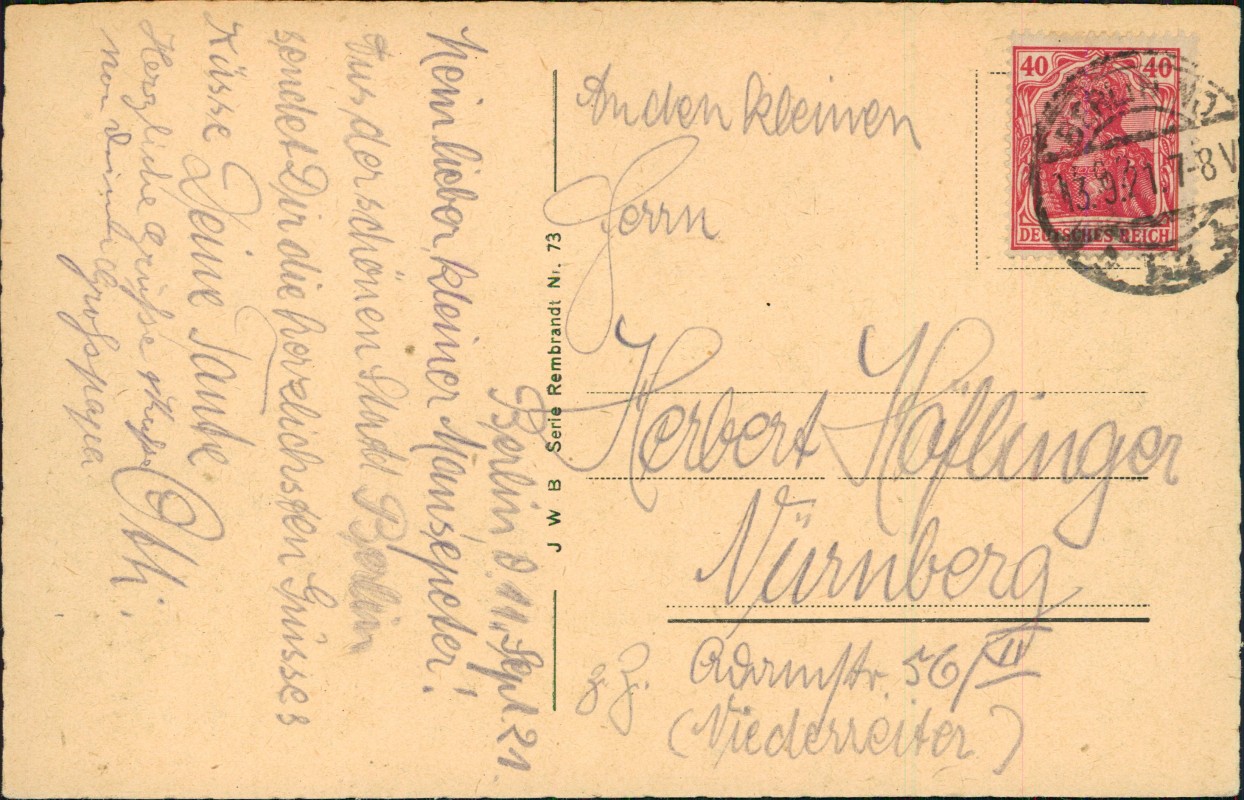 Berlin d. 11. Sept. 21
Mein lieber kleiner Mansepeter!
Aus der schönen Stadt Berlin
sendet Dir die herzlichsten Grüsse &
Küsse Deine Tante
Otti.
Herzliche Grüsse & Küsse
von deinem Grosspapa
J W B Serie Rembrandt Nr. 73
An den kleinen
Herrn
Herbert Höflinger
Nürnberg
z. Z. Adamstr. 56/II
(Niederreiter)
40 40
DEUTSCHES REICH
BERLIN
13.9.21. 7-8 V